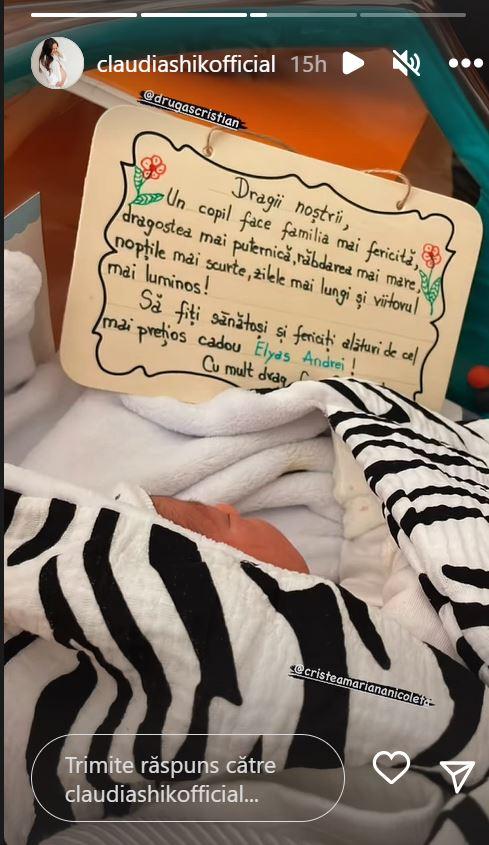 claudiashikofficial 15h
@drugascristian
Dragii noștrii,
Un copil face familia mai fericită,
dragostea mai puternică, răbdarea mai mare,
nopțile mai scurte, zilele mai lungi și viitorul
mai luminos!
Să fiți sănătoși și fericiți alături de cel
mai prețios cadou Elyas Andrei!
Cu mult drag
@cristeamariananicoleta
Trimite răspuns către
claudiashikofficial...